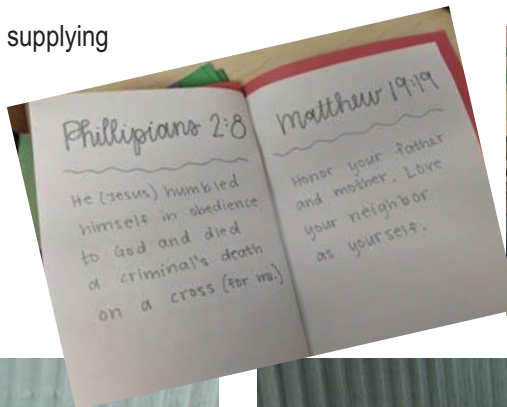 supplying
Phillipians 2:8
He (Jesus) humbled
himself in obedience
to God and died
a criminal's death
on a cross (for me.)
Matthew 19:19
Honor your father
and mother. Love
your neighbor
as yourself.